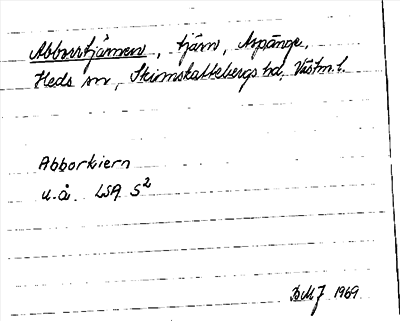 Abborrtjärnen, tjärn, Aspänge,
Heds sn, Skinnskattebergs hd, Västm. l.
Abborkiern
u.å. LSA S2
BMJ 1969